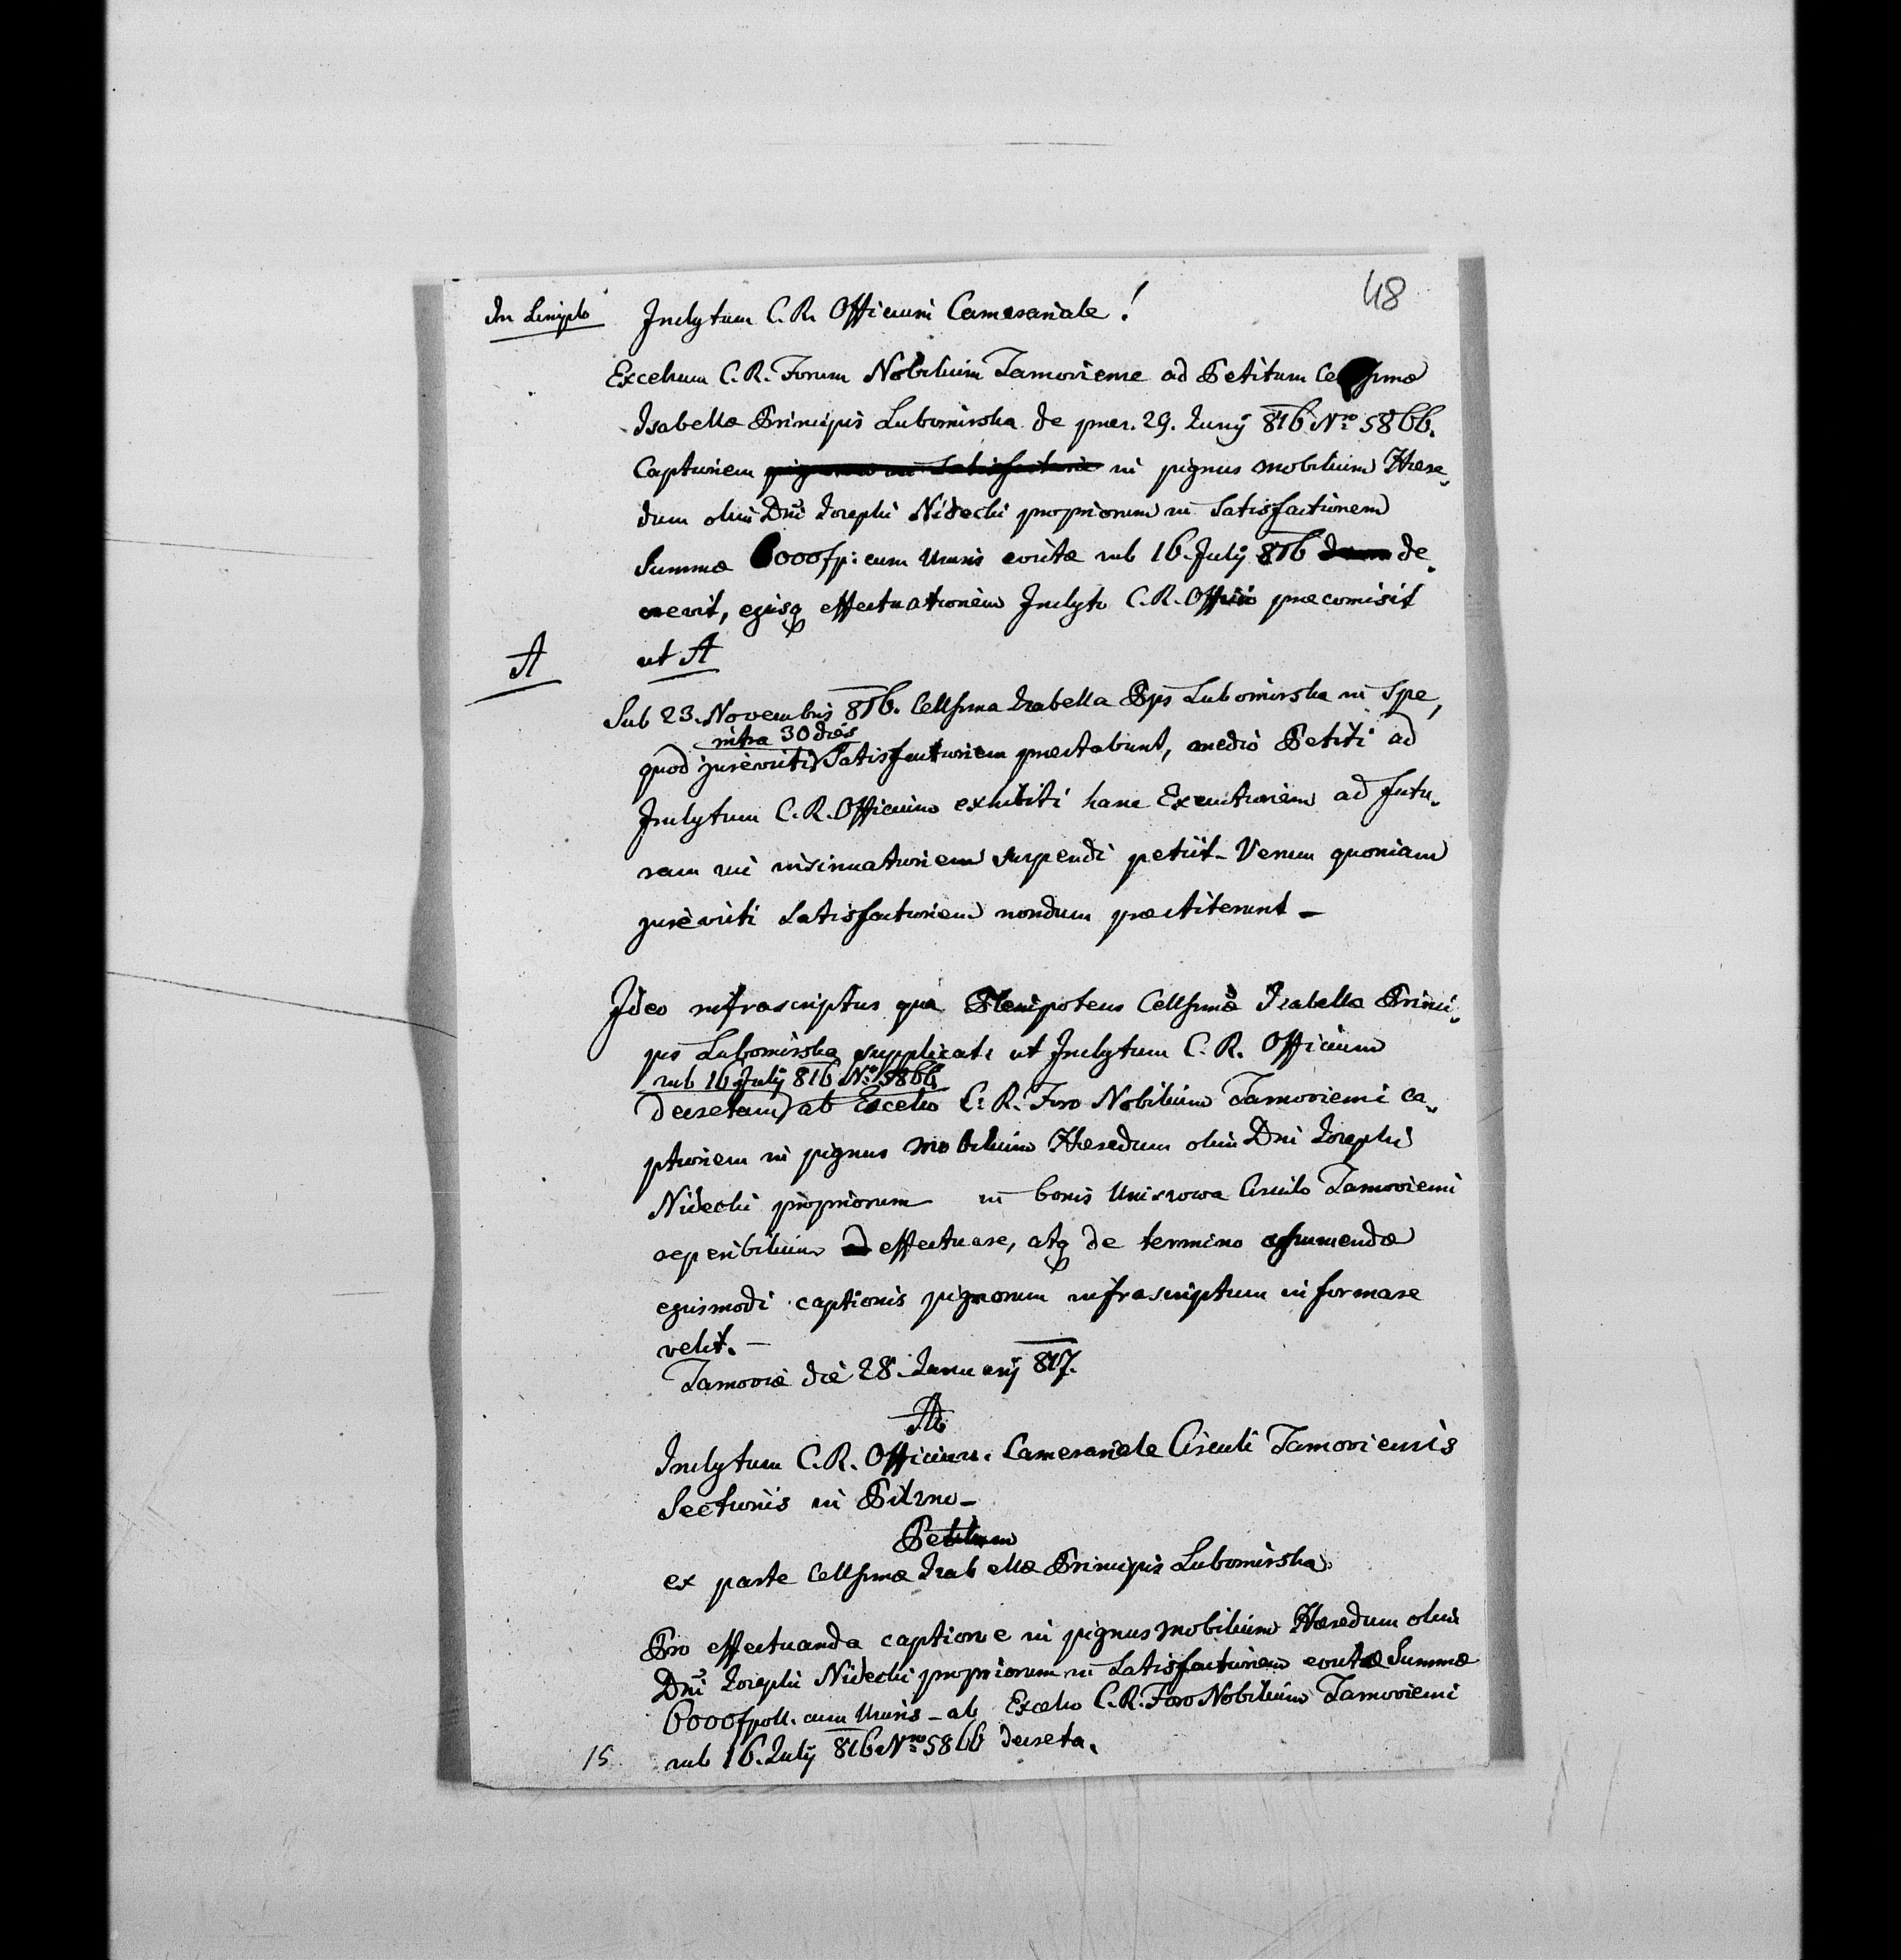 48
In Simplo
Inclytum C. R. Officium Camerariale!
Excelsum C. R. Forum Nobilium Tarnoviense ad Petitum Celssimæ
Isabellæ Principis Lubomirska de præs. 29. Juny 816 Nro 5866.
Captionem pignoris in Satisfactionem in pignus mobilium Hære„
dum olim Dni Josephi Nidecki propriorum in Satisfactionem
Summæ 6000 fp: cum Usuris evictæ sub 16. July 816 de„
crevit, ejusq effectuationem Inclyto C. R. Officio præcomisit
ut A
A
Sub 23. Novembris 816. Cellssima Izabella Pps Lubomirska in Spe,
intra 30 dies
quod jurevicti Satisfactionem præstabunt, medio Petiti ad
Inclytum C. R. Officium exhibiti hanc Executionem ad futu„
ram sui insinuationem suspendi petiit – Verum quoniam
jurevicti Satisfactionem nondum præstiterunt –
Ideo infrascriptus qua Plenipotens Cellssimæ Izabellæ Princi„
pis Lubomirska supplicat: ut Inclytum C. R. Officium
sub 16 July 816 Nro 5866
decretam ab Excelso C: R. Foro Nobilium Tarnoviensi ca„
ptionem in pignus mobilium Hæredum olim Dni Josephi
Nidecki propriorum in bonis Circulo Tarnoviensi
reperibilium effectuare, atq de termino assumendæ
ejusmodi captionis pignorum infrascriptum informare
velit. –
Tarnoviæ die 28. January 817.
Inclytum C. R. Officium Camerariale Circuli Tarnoviensis
Sectionis in Pilzno –
Petitum
ex parte Cellssimæ Izabellæ Principis Lubomirska
Pro effectuanda captione in pignus mobilium Hæredum olim
Dni Josephi Nidecki propriorum in Satisfactionem evictæ Summæ
6000 fpoll. cum Usuris – ab Excelso C. R. Foro Nobilium Tarnoviensi
sub 16. July 816 Nro 5866 decreta.
15